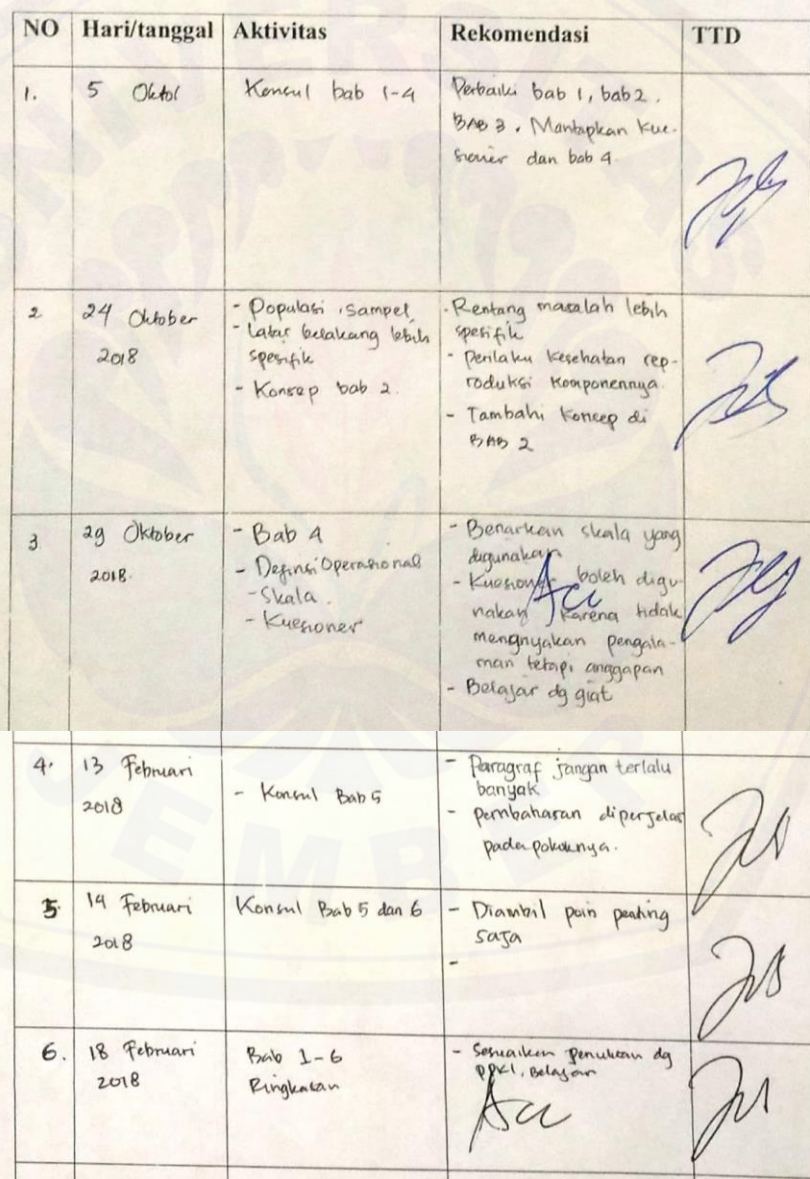 NO Hari/tanggal Aktivitas Rekomendasi TTD
1. 5 Oktol Konsul bab 1-4 Perbaiki bab 1, bab 2.
BAB 3. Mantapkan Kue-
sioner dan bab 4.
2 24 Oktober
2018
- Populasi, Sampel
- Latar belakang lebih
spesifik
- Konsep bab 2.
- Rentang masalah lebih
spesifik
- Perilaku kesehatan rep-
roduksi Komponennya.
- Tambahi Konsep di
BAB 2
3. 29 Oktober
2018.
- Bab 4
- Definsi Operasional
- Skala.
- Kuesioner
- Benarkan skala yang
digunakan
- Kuesioner boleh digu-
nakan karena tidak
mengnyakan pengala-
man tetapi anggapan
- Belajar dg giat
Acc
4. 13 Februari
2018
- Konsul Bab 5
- Paragraf jangan terlalu
banyak
- pembahasan diperjelas
pada pokoknya.
5. 14 Februari
2018
Konsul Bab 5 dan 6
- Diambil poin penting
saja
-
6. 18 Februari
2018
Bab 1-6
Ringkasan
- Sesuaikan penulisan dg
PPKI, Belajar
Acc
JEMBER